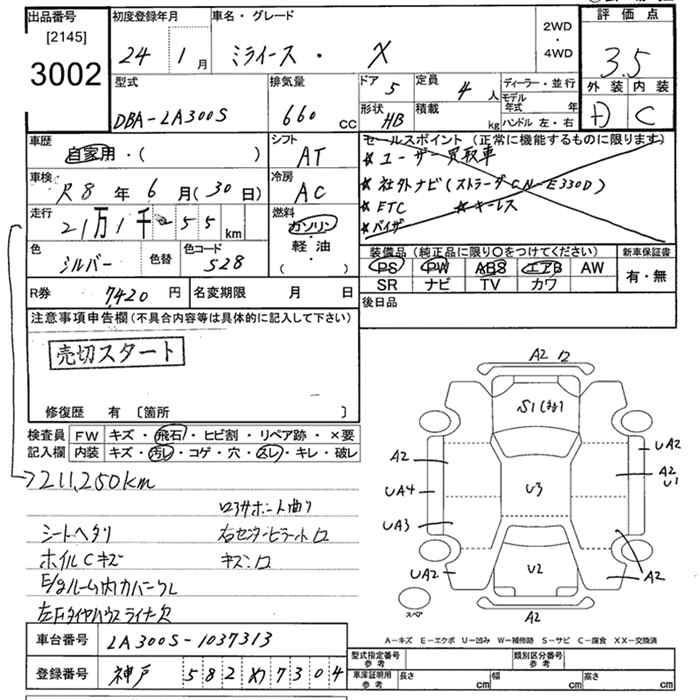 出品番号 初度登録年月 車名・グレード 2WD・4WD 評価点
[2145]
3002 24 1月 ミライース・ X 3.5
外装 内装
型式 排気量 ドア 5 定員 4人 ディーラー・並行
モデル年式 年
DBA-LA300S 660 CC 形状 HB 積載 kg ハンドル 左・右 D C
車歴 シフト セールスポイント (正常に機能するものに限ります)
自家用・( ) AT ★ユーザー買取車
車検 冷房 ★社外ナビ(ストラーダCN-E330D)
R8年6月(30日) AC ★ETC ★キーレス
走行 燃料 ★バイザー
21万1千255km ガソリン・軽油
( )
色 色替 色コード 装備品 (純正品に限り○をつけてください) 新車保証書
シルバー S28 PS PW ABS エアB AW 有・無
SR ナビ TV カワ
R券 7420円 名変期限 月 日 後日品
注意事項申告欄(不具合内容等は具体的に記入して下さい)
売切スタート
修復歴 有 〔箇所 〕
検査員 FW キズ・飛石・ヒビ割・リペア跡・×要
記入欄 内装 キズ・汚レ・コゲ・穴・スレ・キレ・破レ
211,250km
ロアサポート曲り
シートヘタリ 右センターピラート ワ
ホイルCキズ キズ・ワ
E/gルーム内カバークレ
左Fタイヤハウスライナー欠
A2 ワ
S1
A2 UA2
A2
U1
UA4 U3
UA3
UA2 U2 A2
スペア A2
A-キズ E-エクボ U-凹み W-補修跡 S-サビ C-腐食 XX-交換済
車台番号 LA300S-1037313
型式指定番号参考 類別区分番号参考
登録番号 神戸 582め7304
車庫証明用参考 長さ cm 幅 cm 高さ cm